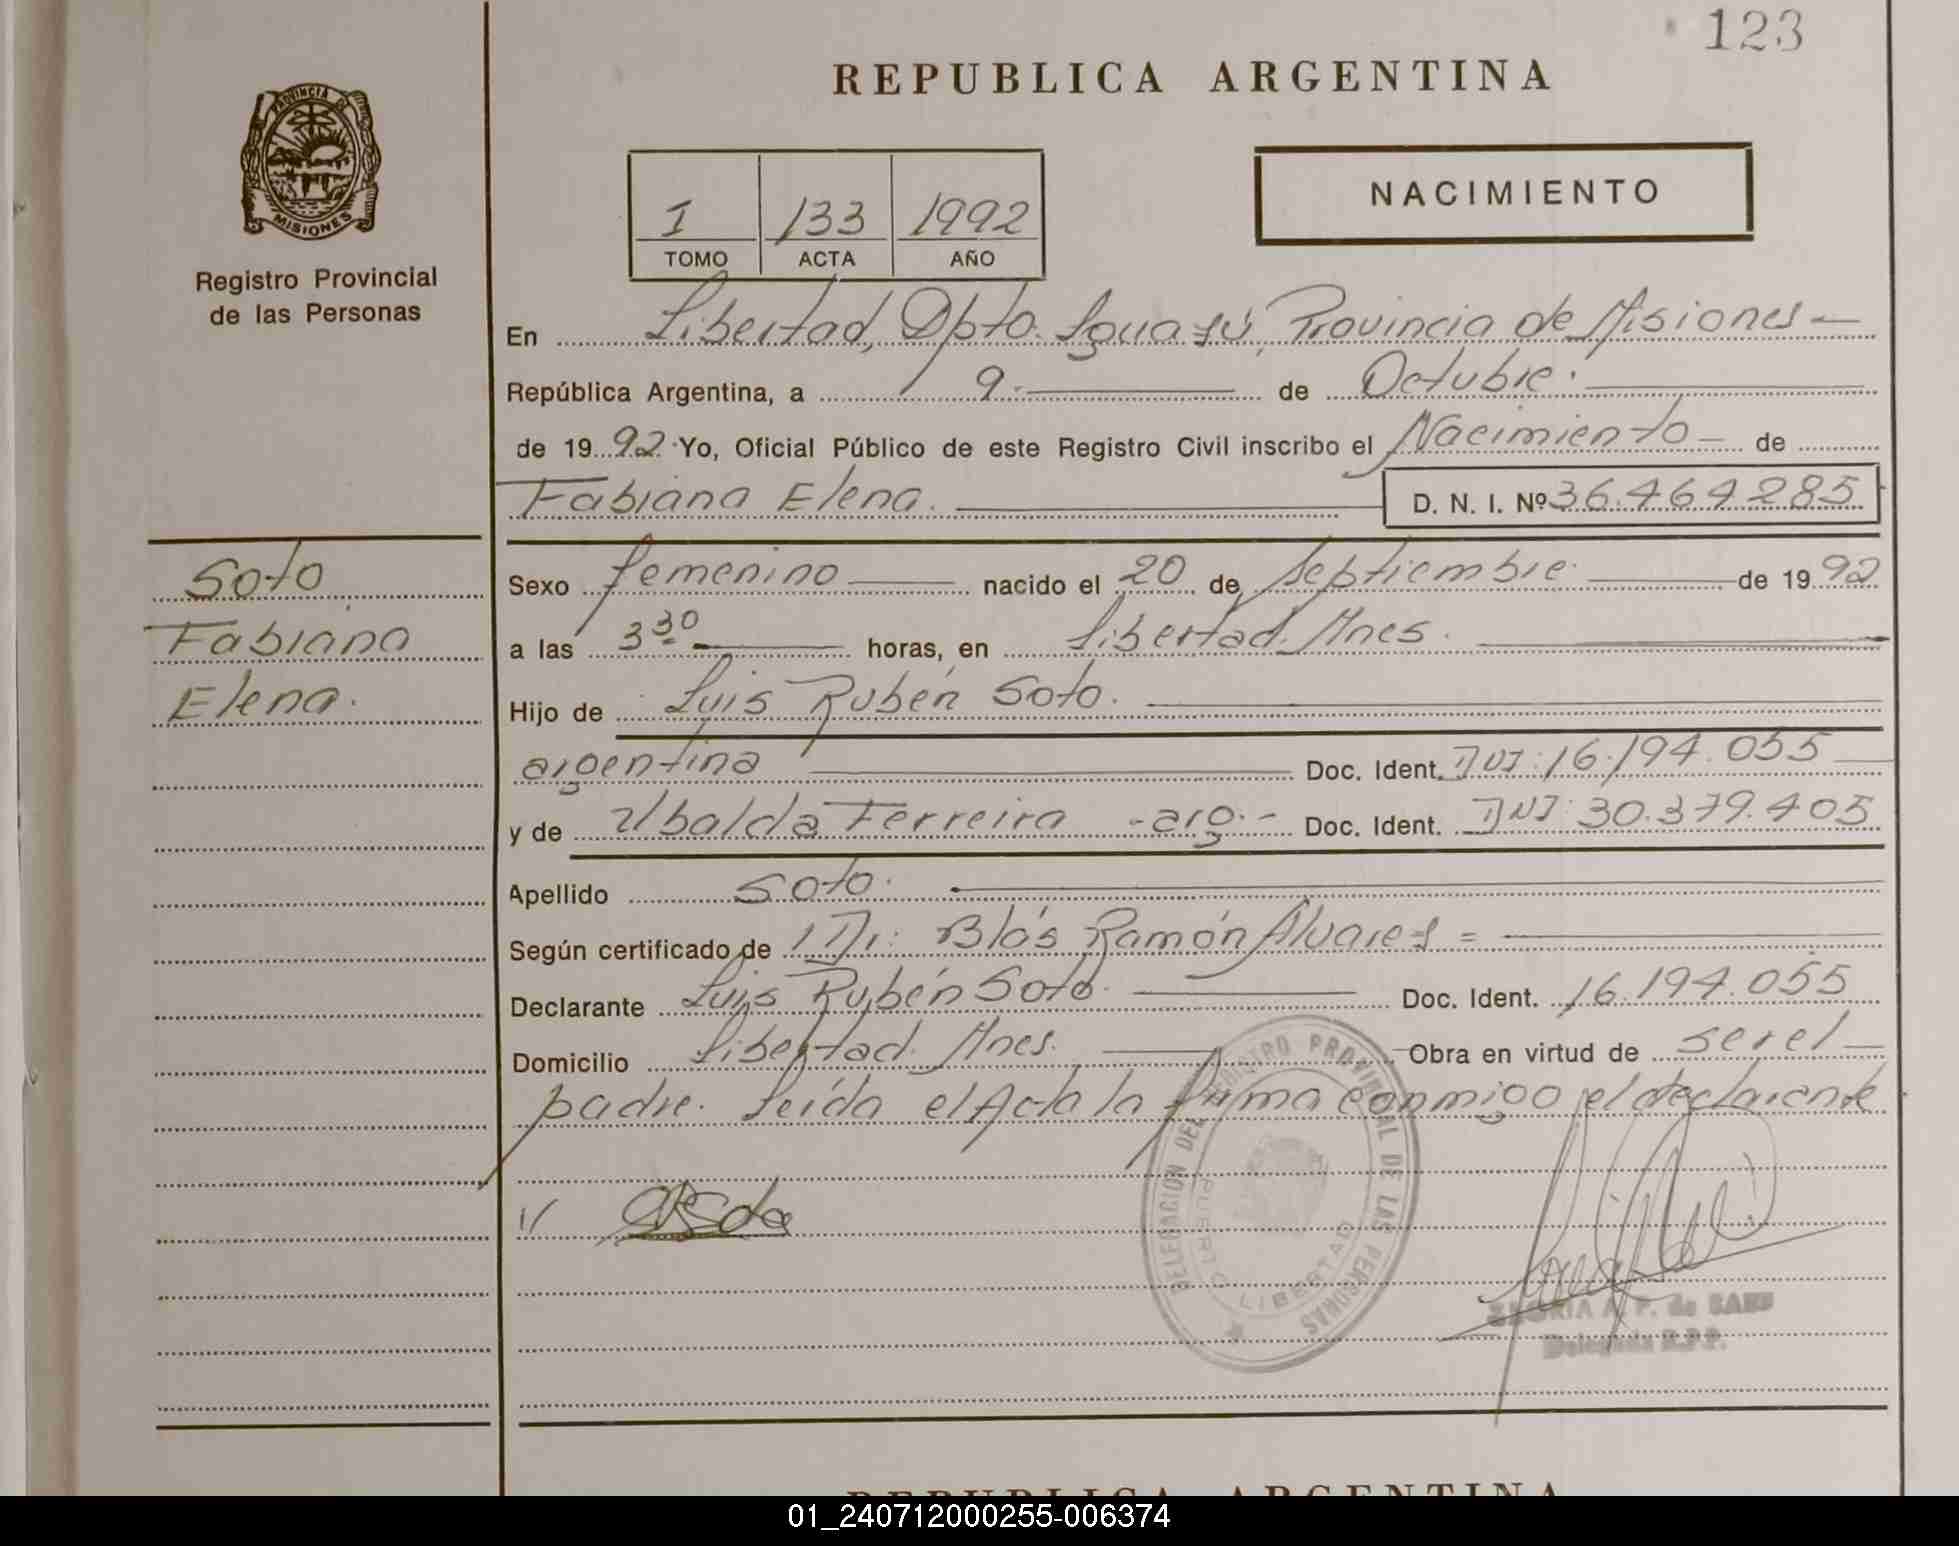 123
REPUBLICA ARGENTINA
PROVINCIA DE
MISIONES
Registro Provincial
de las Personas
I 133 1992
TOMO ACTA AÑO
NACIMIENTO
En Libertad, Dpto. Iguazú, Provincia de Misiones —
República Argentina, a 9. — de Octubre. —
de 1992. Yo, Oficial Público de este Registro Civil inscribo el Nacimiento — de
Fabiana Elena. — D. N. I. Nº 36.464.285
Soto
Fabiana
Elena.
Sexo femenino — nacido el 20 de septiembre. — de 1992
a las 3 30 — horas, en Libertad. Mnes. —
Hijo de Luis Rubén Soto. —
argentina — Doc. Ident. DNI: 16.194.055 —
y de Ubalda Ferreira - arg. - Doc. Ident. DNI: 30.379.405
Apellido Soto. —
Según certificado de Dr: Blás Ramón Alvares = —
Declarante Luis Rubén Soto. — Doc. Ident. 16.194.055
Domicilio Libertad. Mnes. — Obra en virtud de ser el —
padre. Leída el Acta la firma conmigo el declarante
DELEGACION DEL REGISTRO PROVINCIAL DE LAS PERSONAS
PUERTO LIBERTAD
A. P. de
Delegada R.P.P.
REPUBLICA ARGENTINA
01_240712000255-006374